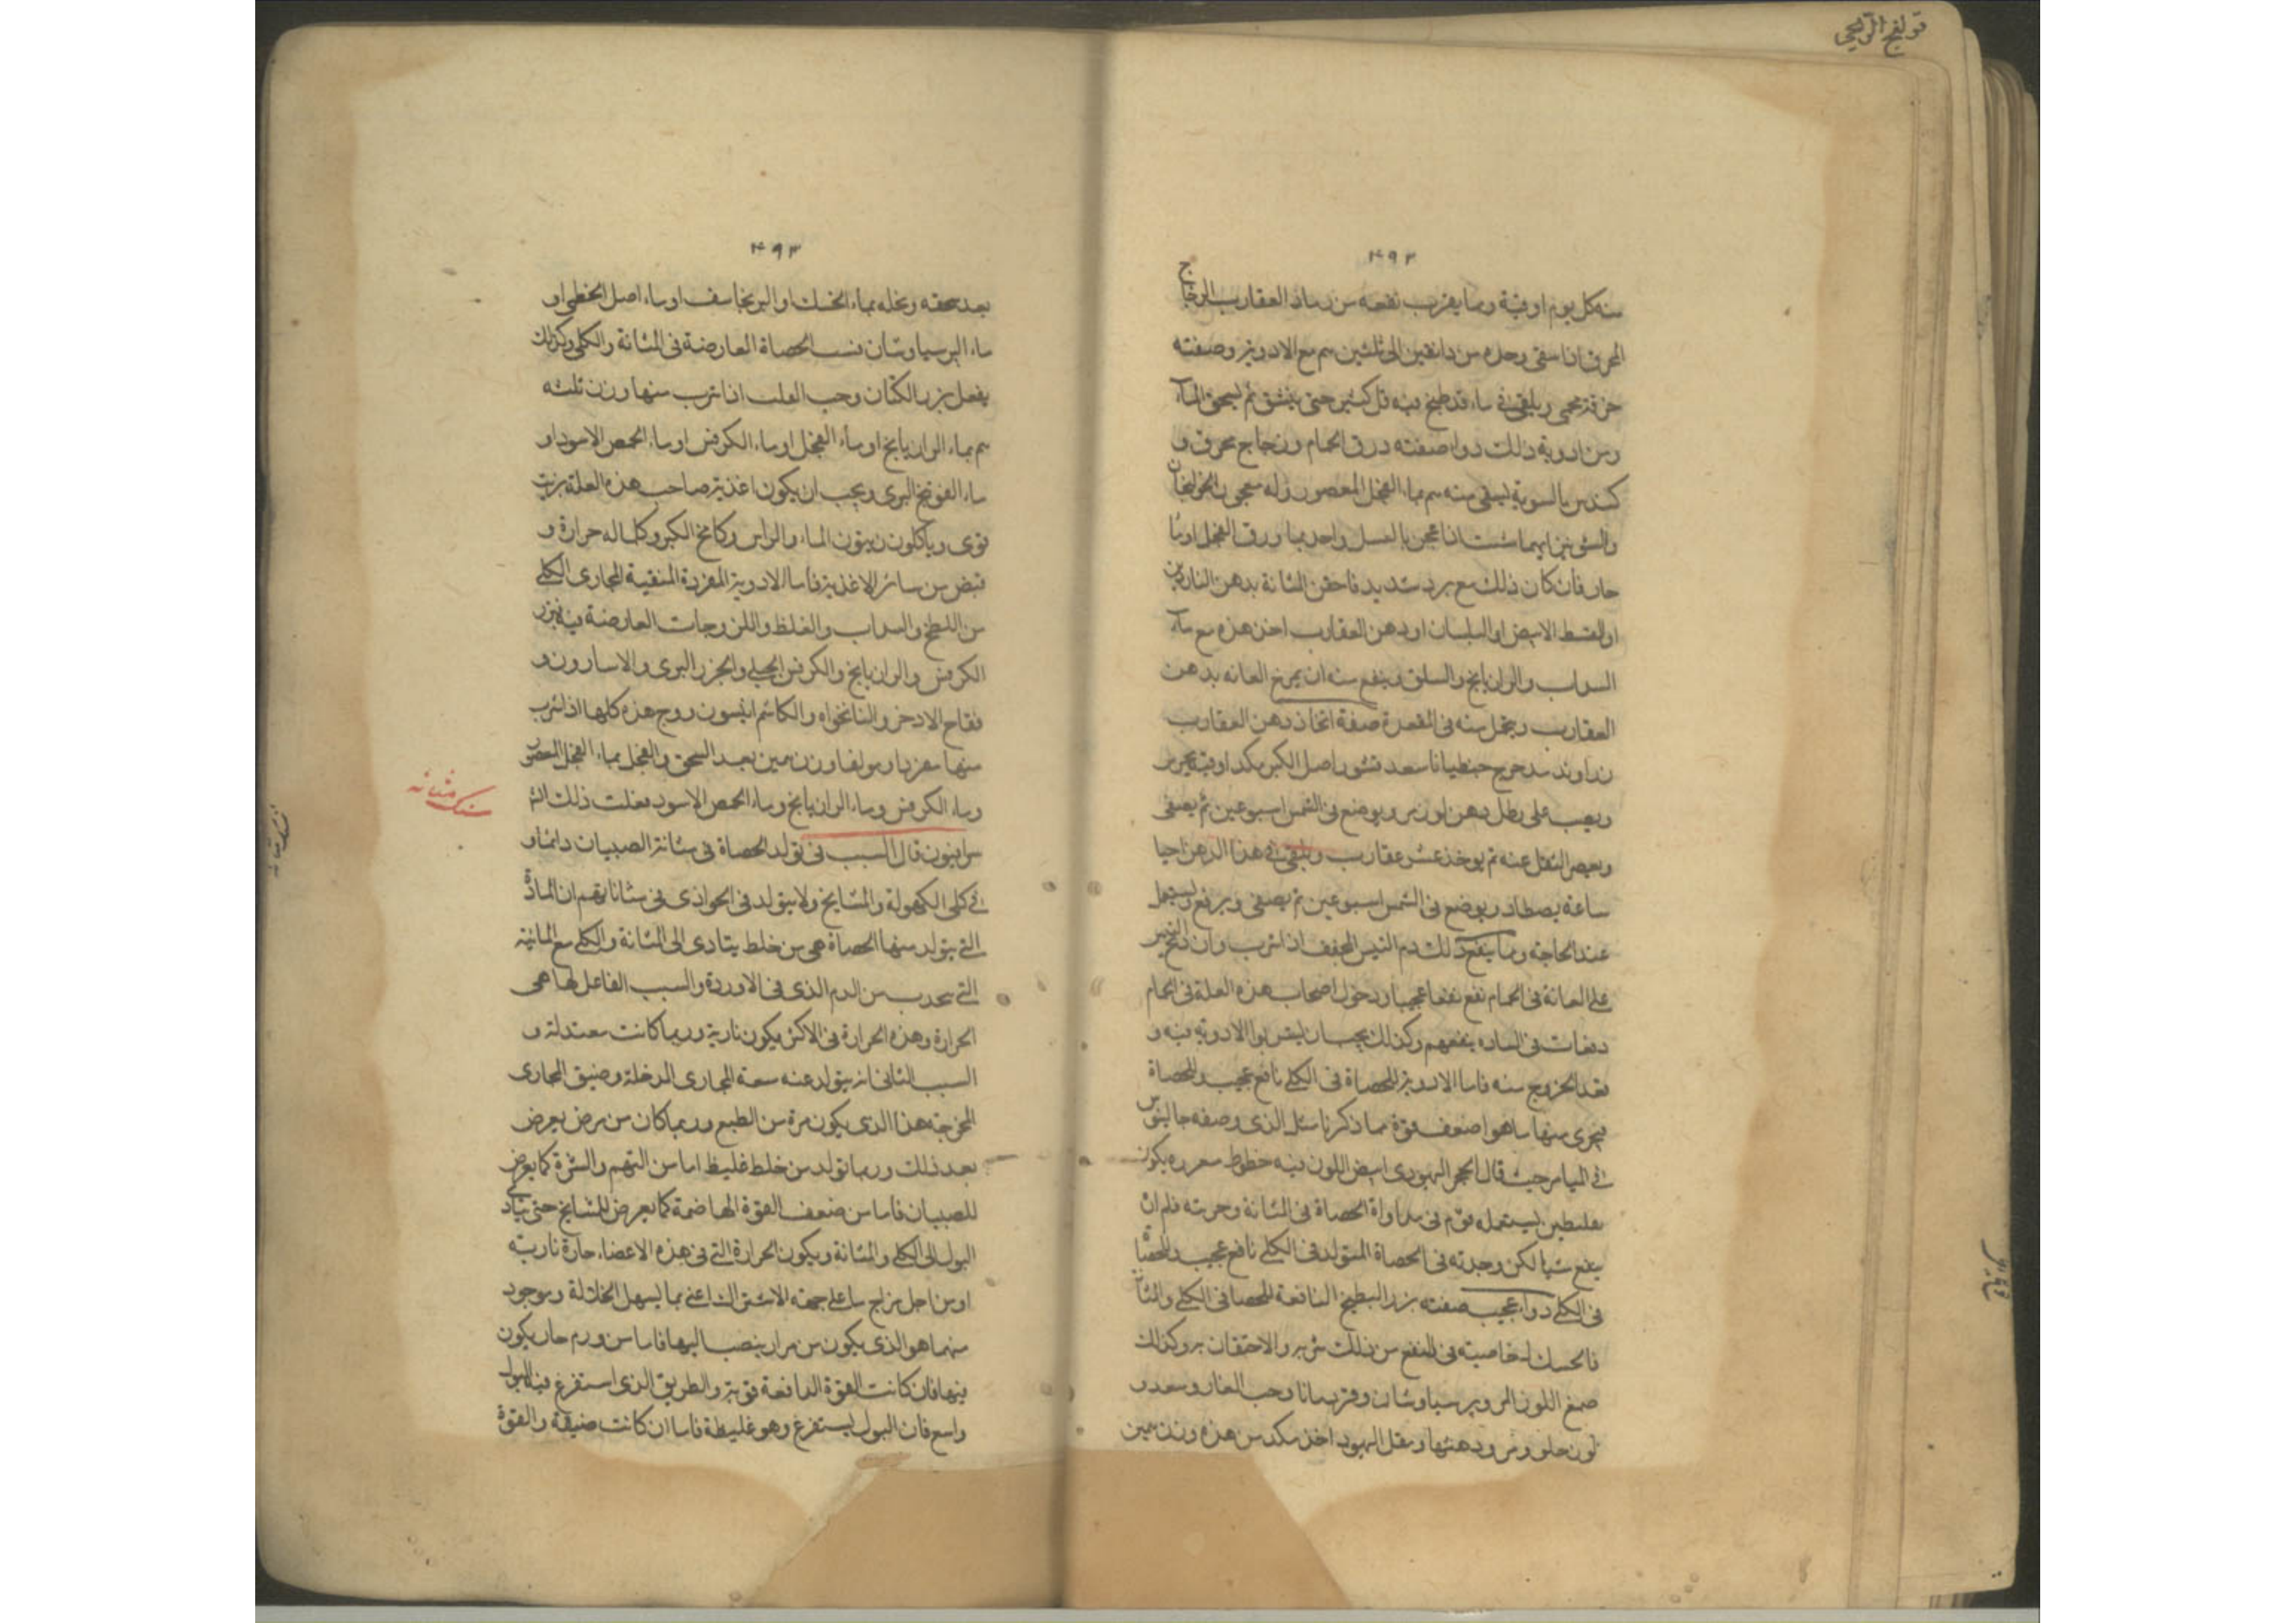 قولنج الريحى
۴۹۲
منه كل يوم اوقية ومما يقرب نفعه من رماد العقارب الزجاج
المحرق اذا سقى وحده من دانقين الى ثلثين مع الادوية وصفته
يحمى ويلقى فى ماء قد طبخ فيه حتى ثم يسحق
ومن ادوية ذلك دواء صفته ذرق الحمام وزجاج محرق و
كندس بالسوية يسقى منه بماء الفجل المعصور وله معجون الخولنجان
والشونيز ايهما شئت اذا عجن بالعسل واخذ بماء ورق الفجل او ماء
حار فان كان ذلك مع برد شديد فاحقن المثانة بدهن الناردين
او القسط الابيض او البلسان او دهن العقارب اخذ هذه مع ماء
السداب والرازيانج والسلق وينفع منه ان يمرخ العانه بدهن
العقارب ويحمل منه فى المقعدة صفة اتخاذ دهن العقارب
زراوند مدحرج جنطيانا سعد قشور اصل الكبر مكد اوقية
ويصب على رطل دهن لوز مر ويوضع فى الشمس اسبوعين ثم يصفى
ويعصر الثفل عنه ثم يوخذ عشر عقارب ويلقى فى هذا الدهن احيا
ساعة يصطاد ويوضع فى الشمس اسبوعين ثم يصفى ويرفع ويستعمل
عند الحاجة ومما ينفع ذلك دم التيس المجفف اذا شرب وان
على العانة فى الحمام نفع نفعا عجيبا ودخول اصحاب هذه العلة فى الحمام
دفعات فى ينفعهم وكذلك يجب ان يشربوا الادوية فيه و
بعد الخروج منه فاما الادوية للحصاة فى الكلى نافع عجيب وللحصاة
فيجرى منها ما هو اضعف قوة مما ذكرنا مثل الذى وصفه جالينوس
فى الميامر حيث قال الحجر اليهودى ابيض اللون فيه خطوط يكون
بفلسطين يستعمله قوم فى مداواة الحصاة فى المثانة وجربته فلم ان
ينفع شيا لكن وجدته فى الحصاة المتولد فى الكلى نافع عجيب
فى الكلى دواء عجيب صفته بزر البطيخ النافعة للحصا فى الكلى والمثانة
فالحسك له خاصية فى النفع من ذلك شربه والاحتقان به وكذلك
صمغ اللوز المر وبرسياوشان وحب الغار وسعد و
لوز حلو ومر ودهنها ومقل اليهود اخذ مكد من هذه وزن
۴۹۳
بعد سحقه ونخله بماء الحسك او البرنجاسف او ماء اصل الخطمى او
ماء البرسياوشان فتت الحصاة العارضة فى المثانة والكلى وكذلك
يفعل بزر الكتان وحب القلت اذا شرب منها وزن ثلثه
بماء الرازيانج او ماء الفجل او ماء الكرفس او ماء الحمص الاسود او
ماء الفوتنج البرى ويجب ان يكون اغذية صاحب هذه العلة بزيت
قوى وياكلون زيتون الماء والراس وكامخ الكبر وكلما له حرارة و
قبض من سائر الاغذية فاما الادوية المفردة المنقية لمجارى الكلى
من اللطخ والغلظ واللزوجات العارضة فيه فبزر
الكرفس والرازيانج والكرفس الجبلى والجزر البرى والاسارون و
فقاح الاذخر والنانخواه والكاشم انيسون ووج هذه كلها اذا شرب
منها مفردا ومولفا وزن بعد السحق والنخل بماء الفجل المعصور
وماء الكرفس وماء الرازيانج وماء الحمص الاسود فعلت ذلك
سنك مثانه
سرابيون قال السبب فى تولد الحصاة فى مثانة الصبيان دائما و
فى كلى الكهولة والمشايخ ولا يتولد فى الجوارى فى مثاناتهم ان المادة
التى يتولد منها الحصاة هى من خلط يتادى الى المثانة والكلى مع المائية
التى من الدم الذى فى الاوردة والسبب الفاعل لها هى
الحرارة وهذه الحرارة فى الاكثر يكون نارية وربما كانت معتدلة و
السبب الثانى انه يتولد عنه سعة المجارى المدخلة وضيق المجارى
المخرجة هذا الذى يكون مرة من الطبع وربما كان من مرض يعرض
بعد ذلك وربما تولد من خلط غليظ اما من النهم والشره كما يعرض
للصبيان فاما من ضعف القوة الهاضمة كما يعرض للمشايخ حتى يتادى
البول الى الكلى والمثانة ويكون الحرارة التى فى هذه الاعضاء حارة نارية
او من اجل مزاج ما على جهة اعنى مما يسهل وموجود
منهما هو الذى يكون من مرار ينصب اليها فاما من ورم حار يكون
فيها فان كانت القوة الدافعة قوية والطريق الذى استفرغ فيه البول
واسع فان البول يستفرغ وهو غليظة فاما ان كانت ضيقة والقوة